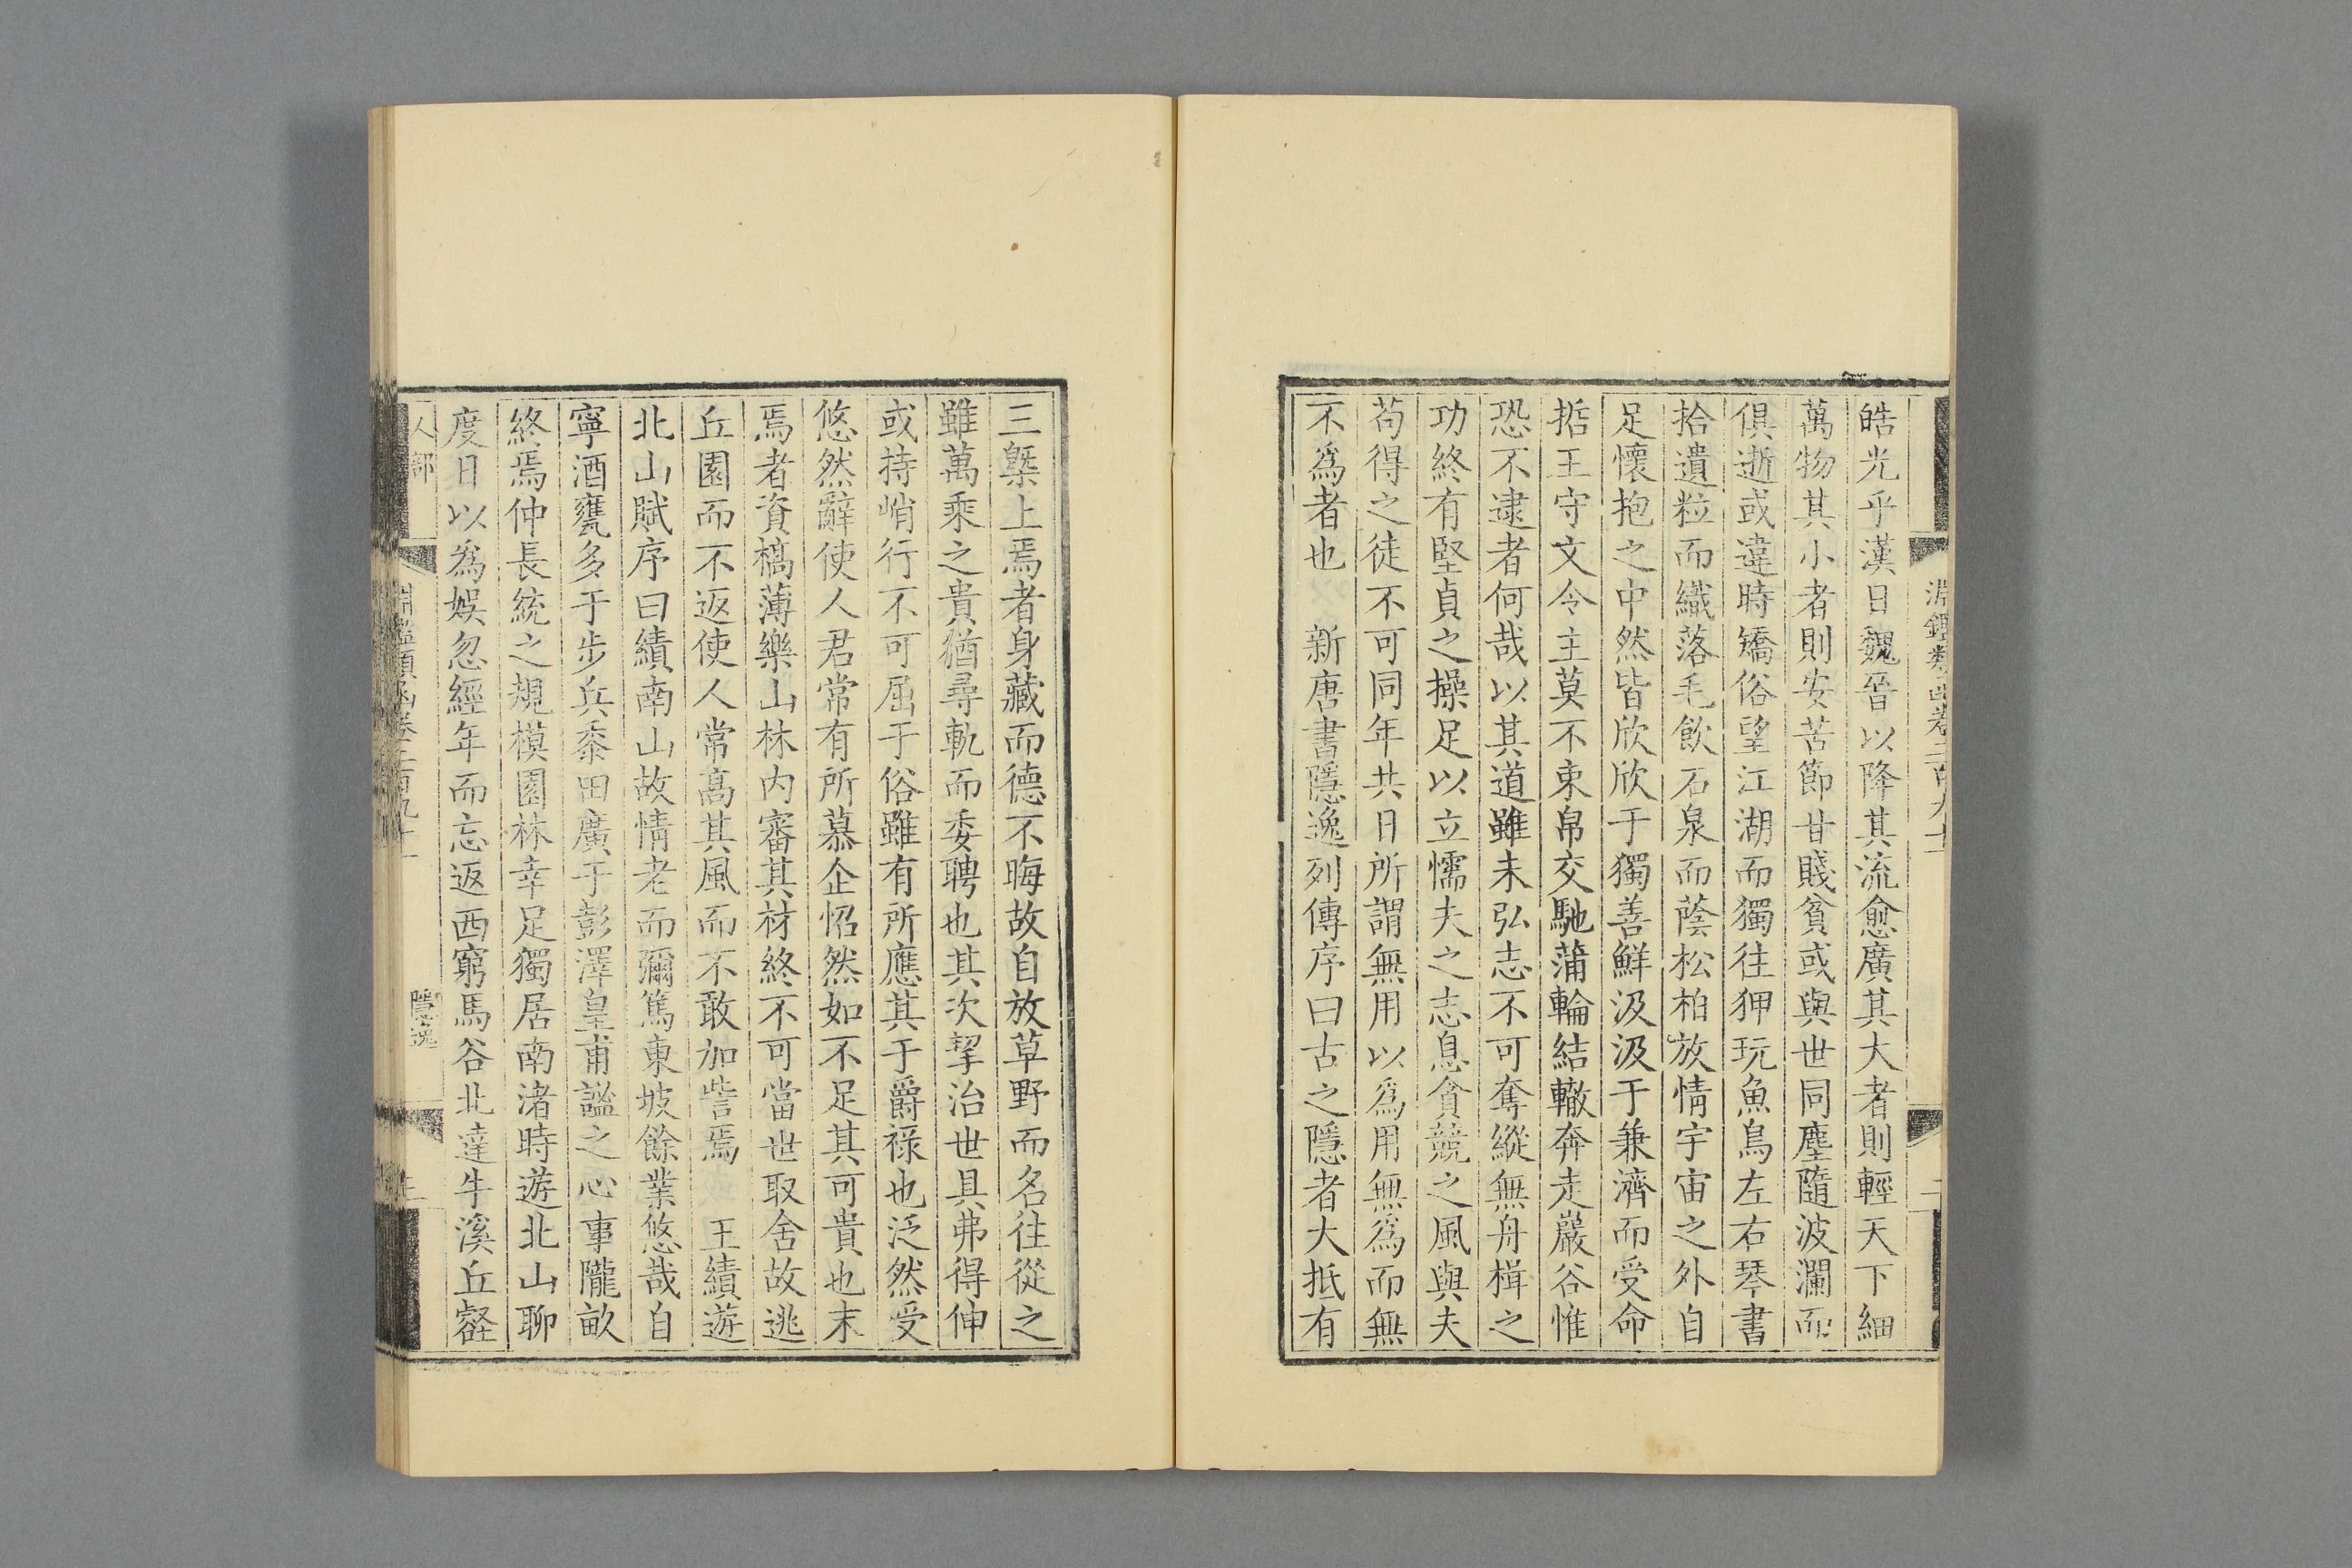 皓光乎漢日魏晉以降其流愈廣其大者則輕天下細
萬物其小者則安苦節甘賤貧或與世同塵隨波瀾而
俱逝或違時矯俗望江湖而獨往狎玩魚鳥左右琴書
拾遺粒而織落毛飲石泉而蔭松柏放情宇宙之外自
足懷抱之中然皆欣欣于獨善鮮汲汲于兼濟而受命
哲王守文令主莫不束帛交馳蒲輪結轍奔走巖谷惟
恐不逮者何哉以其道雖未弘志不可奪縱無舟楫之
功終有堅貞之操足以立懦夫之志息貪競之風與夫
苟得之徒不可同年共日所謂無用以為用無為而無
不為者也　新唐書隱逸列傳序曰古之隱者大抵有
三槩上焉者身藏而德不晦故自放草野而名往從之
雖萬乘之貴猶尋軌而委聘也其次挈治世具弗得伸
或持峭行不可屈于俗雖有所應其于爵祿也泛然受
悠然辭使人君常有所慕企怊然如不足其可貴也末
焉者資槁薄樂山林內審其材終不可當世取舍故逃
丘園而不返使人常高其風而不敢加訾焉　王績遊
北山賦序曰績南山故情老而彌篤東坡餘業悠哉自
寧酒甕多于步兵黍田廣于彭澤皇甫謐之心事隴畝
終焉仲長統之規模園林幸足獨居南渚時遊北山聊
度日以為娛忽經年而忘返西窮馬谷北達牛溪丘壑
人部
淵鑑類函卷二百九十
隱逸